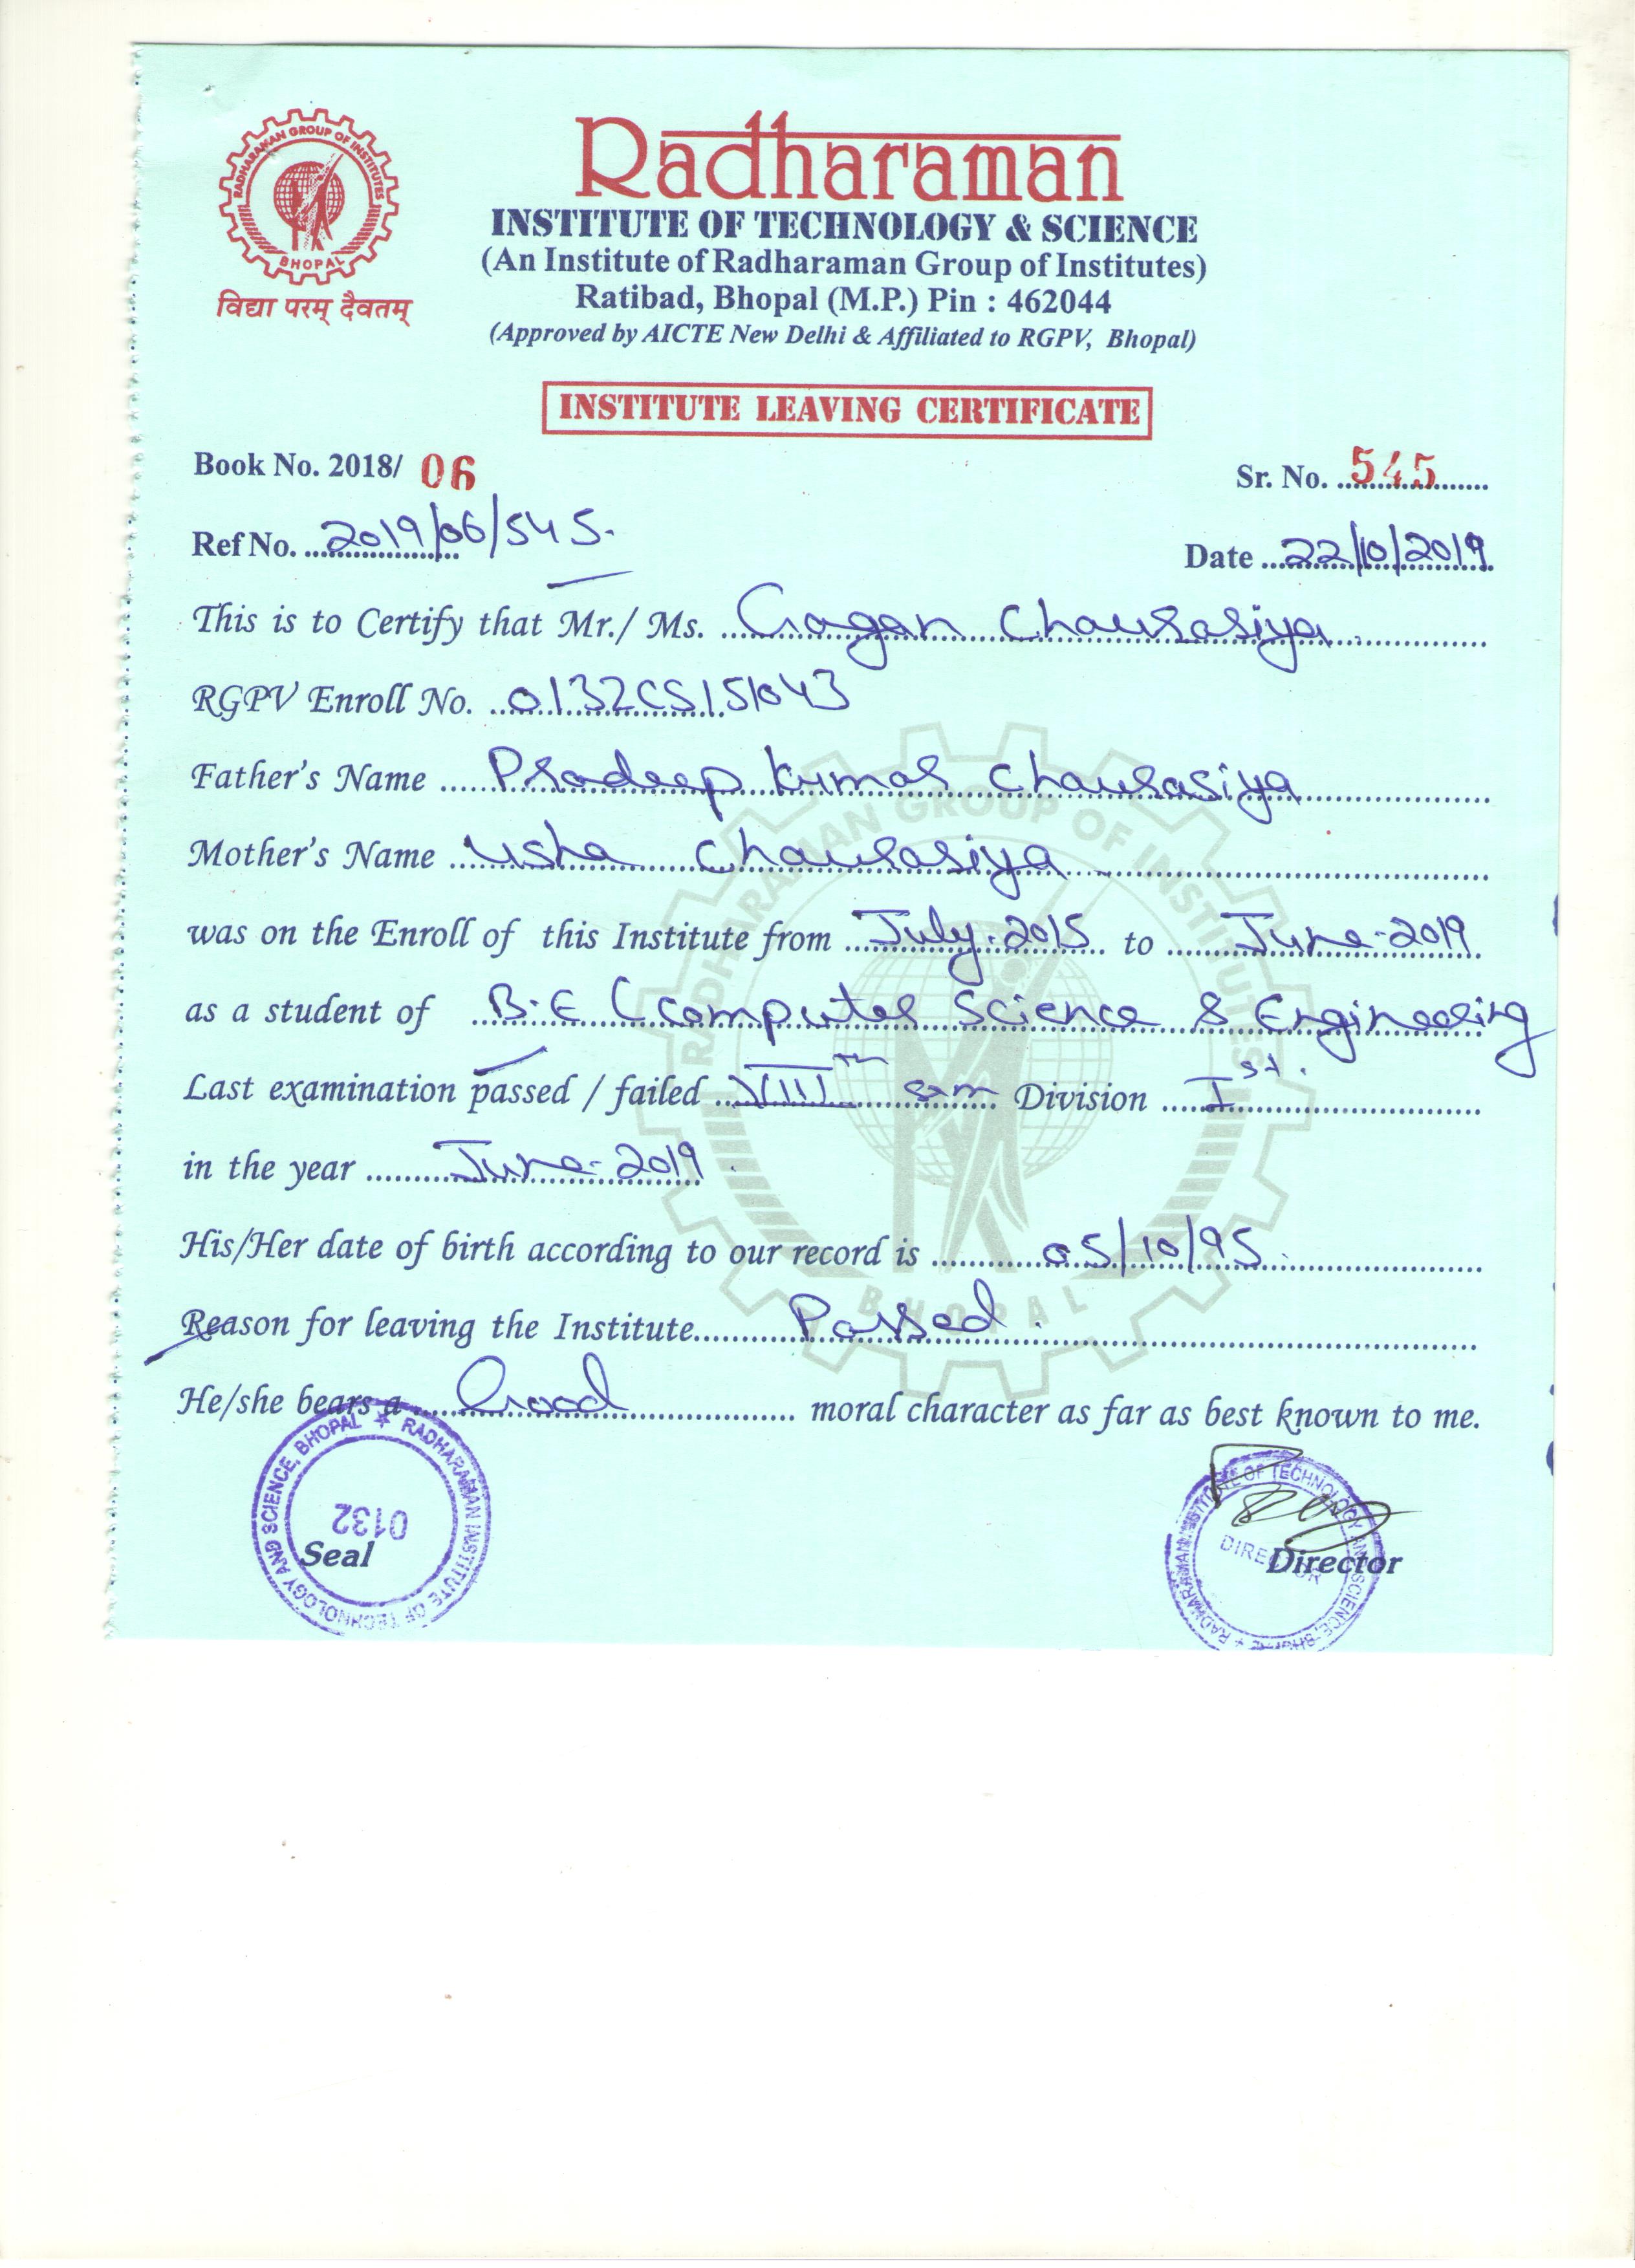 RADHARAMAN GROUP OF INSTITUTES
BHOPAL
विद्या परम् दैवतम्
Radharaman
INSTITUTE OF TECHNOLOGY & SCIENCE
(An Institute of Radharaman Group of Institutes)
Ratibad, Bhopal (M.P.) Pin : 462044
(Approved by AICTE New Delhi & Affiliated to RGPV, Bhopal)
INSTITUTE LEAVING CERTIFICATE
Book No. 2018/ 06
Sr. No. 545
Ref No. 2019/06/545.
Date 22/10/2019
This is to Certify that Mr./ Ms. Gagan Chaurasiya
RGPV Enroll No. 0132CS151043
Father's Name Pradeep Kumar Chaurasiya
Mother's Name Usha Chaurasiya
was on the Enroll of this Institute from July.2015 to June-2019
as a student of B.E (Computer Science & Engineering
Last examination passed / failed VIIIth sem Division Ist.
in the year June-2019.
His/Her date of birth according to our record is 05/10/95.
Reason for leaving the Institute Passed.
He/she bears a Good moral character as far as best known to me.
RADHARAMAN INSTITUTE OF TECHNOLOGY AND SCIENCE, BHOPAL
0132
Seal
RADHARAMAN INSTITUTE OF TECHNOLOGY AND SCIENCE, BHOPAL
DIRECTOR
Director
RADHARAMAN GROUP OF INSTITUTES
BHOPAL